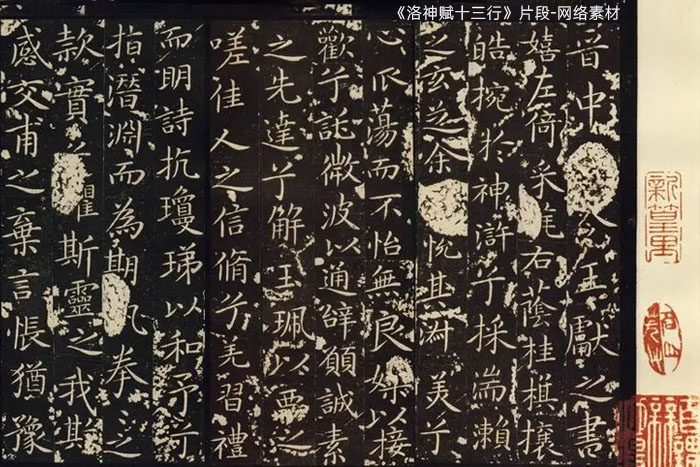 《洛神赋十三行》片段-网络素材
晉中令王獻之書
嬉左倚采旄右蔭桂旗攘
皓捥於神滸兮採湍瀨
之玄芝余悅其淑美兮
心振蕩而不怡無良媒以接
歡兮託微波以通辭願誠素
之先達兮解玉珮以要之
嗟佳人之信脩兮羌習禮
而明詩抗瓊珶以和予兮
指潛淵而為期執拳之
款實兮懼斯靈之我欺
感交甫之棄言悵猶豫